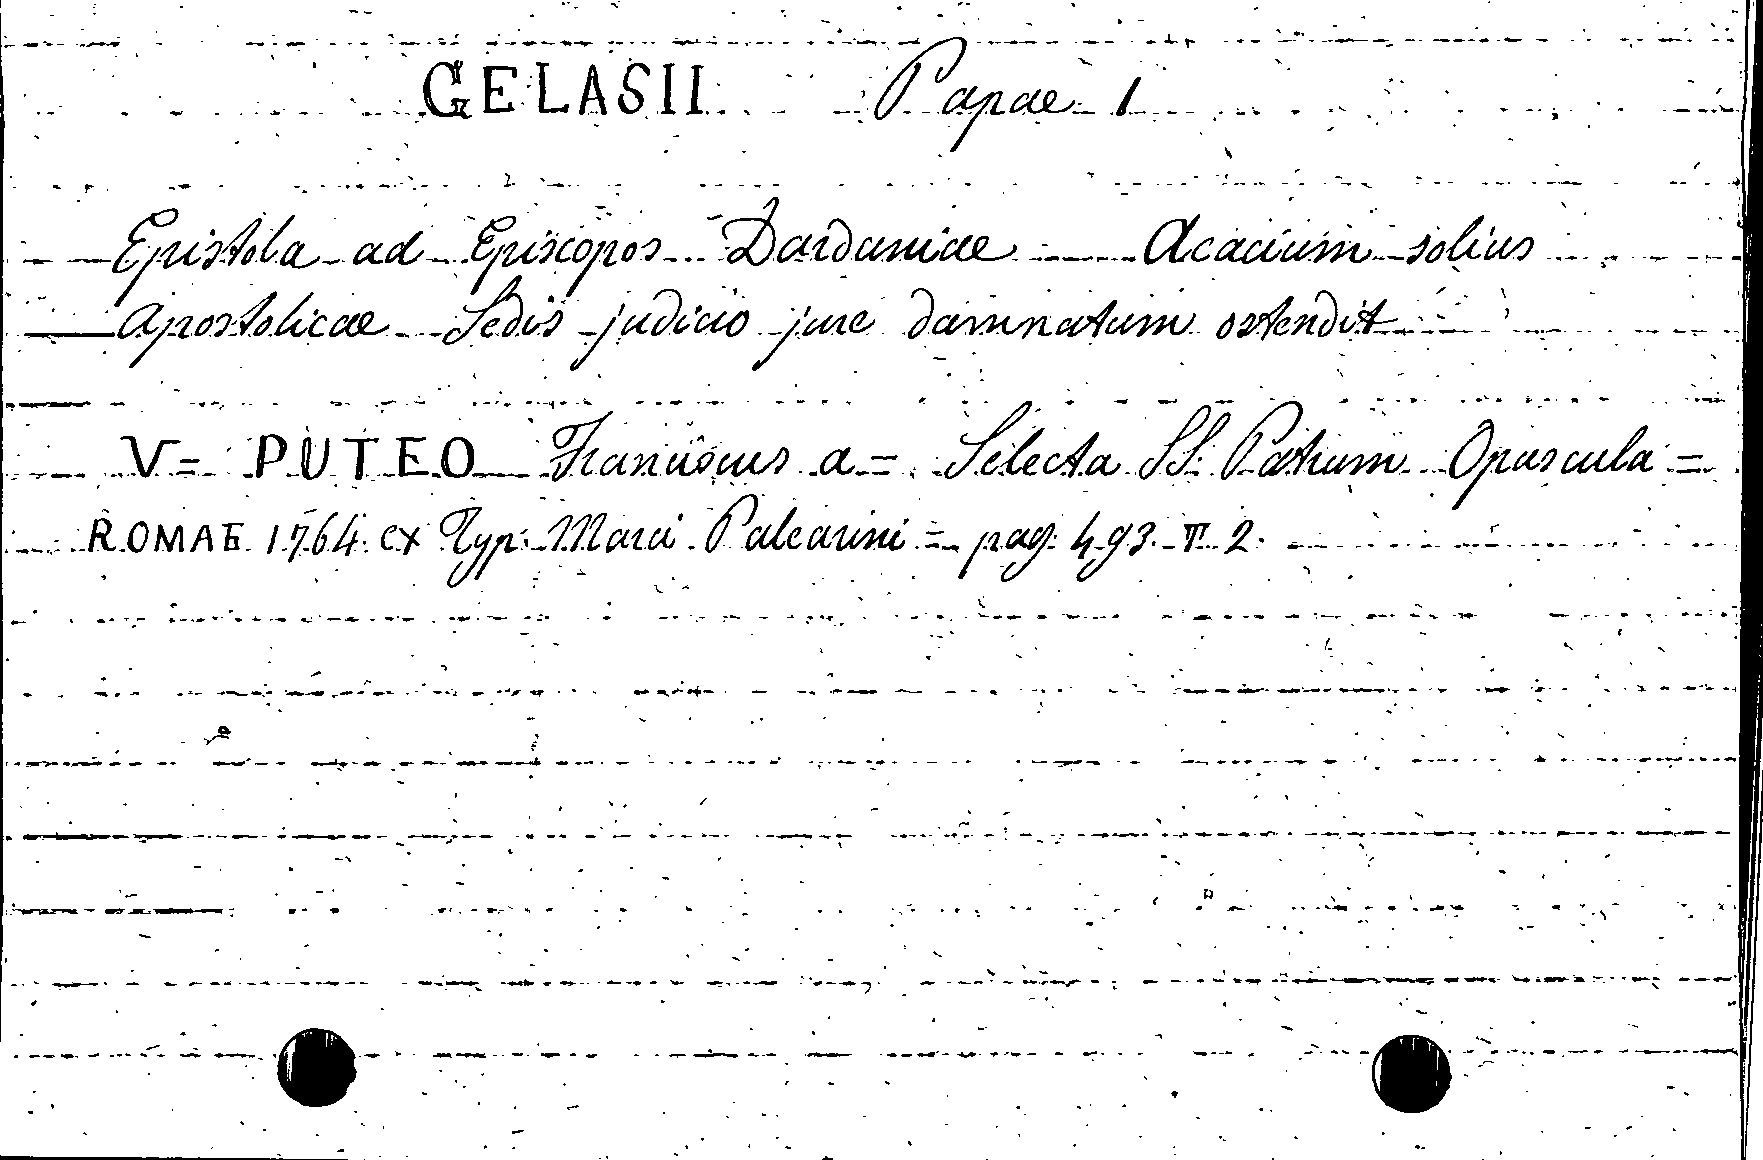 GELASII Papae 1
Epistola ad Episcopos Dardaniae Acacium solius
Apostolicae Sedis judicio jure damnatum ostendit
V= PUTEO Franciscus a = Selecta SS. Patrum Opuscula =
ROMAE 1764. ex Typ: Marci Palearini = pag. 493. T 2.